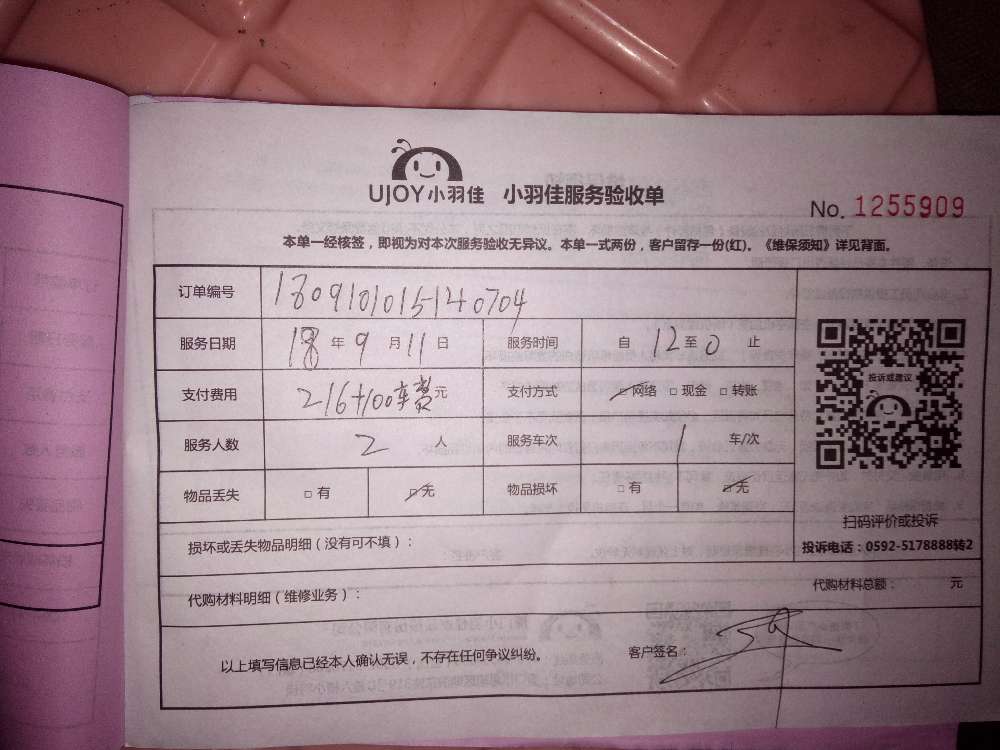 UJOY小羽佳 小羽佳服务验收单
No. 1255909
本单一经核签，即视为对本次服务验收无异议。本单一式两份，客户留存一份(红)。《维保须知》详见背面。
订单编号 180910101515140704
服务日期 18 年 9 月 11 日 服务时间 自 12 至 0 止
支付费用 216+100车费元 支付方式 □ 网络 □ 现金 □ 转账
服务人数 2 人 服务车次 1 车/次
物品丢失 □ 有 □ 无 物品损坏 □ 有 □ 无
投诉或建议
扫码评价或投诉
投诉电话：0592-5178888转2
损坏或丢失物品明细（没有可不填）：
代购材料明细（维修业务）： 代购材料总额： 元
以上填写信息已经本人确认无误，不存在任何争议纠纷。 客户签名：